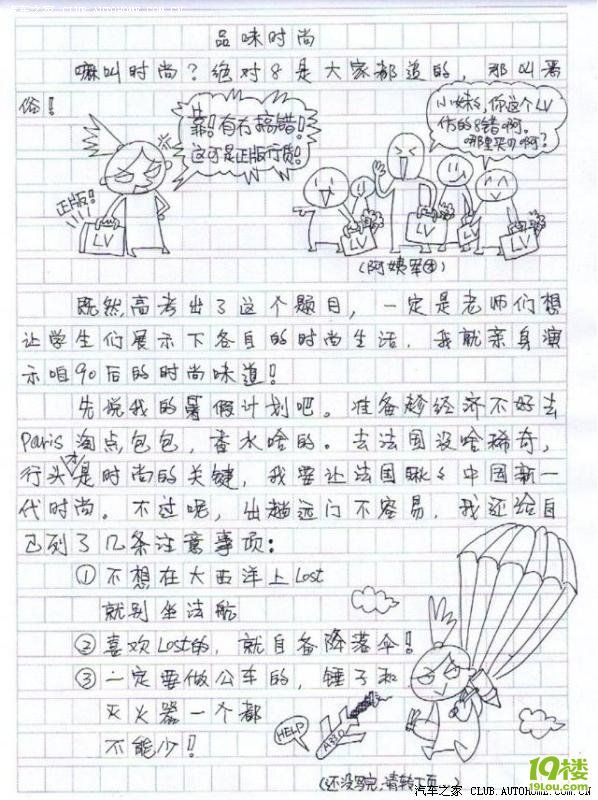 汽车之家 CLUB.AUTOHOME.COM.CN
品味时尚
嘛叫时尚？绝对8是大家都道的，那叫恶
俗！
靠！有冇搞错！
这可是正版行货！
小妹8，你这个LV
仿的8错啊。
哪里买D啊？
正版！
LV
LV
LV
LV
（阿姨军团）
既然高考出了这个题目，一定是老师们想
让学生们展示下各自的时尚生活，我就亲身演
示咱90后的时尚味道！
先说我的暑假计划吧。准备趁经济不好去
Paris淘点包包，香水啥的。去法国没啥稀奇，
行头才是时尚的关键，我要让法国瞅瞅中国新一
代时尚。不过呢，出趟远门不容易，我还给自
己列了几条注意事项：
① 不想在大西洋上Lost
就别坐法航
② 喜欢Lost的，就自备降落伞！
③ 一定要做公车的，锤子和
灭火器一个都
不能少！
HELP
A330
（还没写完，请转下页...）
19楼
19lou.com
汽车之家 CLUB.AUTOHOME.COM.CN